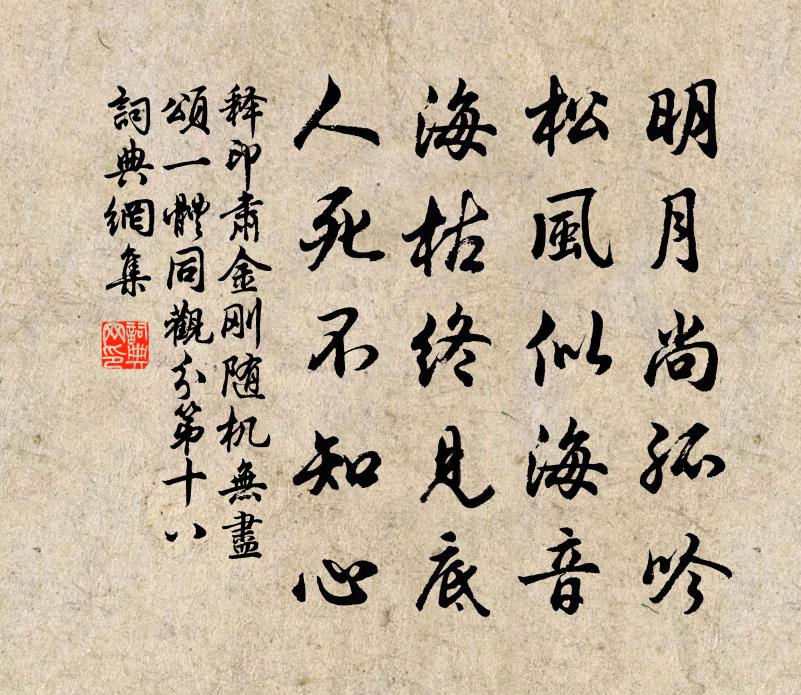 明月尚孤吟
松風似海音
海枯終見底
人死不知心
释印肅金刚随机無盡
頌一體同觀分第十八
詞典網集
詞典网印